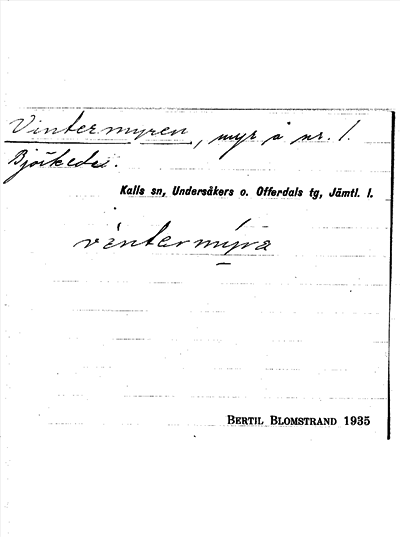 Vintermyren, myr å nr. 1.
Björkede.
Kalls sn, Undersåkers o. Offerdals tg, Jämtl. l.
vìntermýra
BERTIL BLOMSTRAND 1935